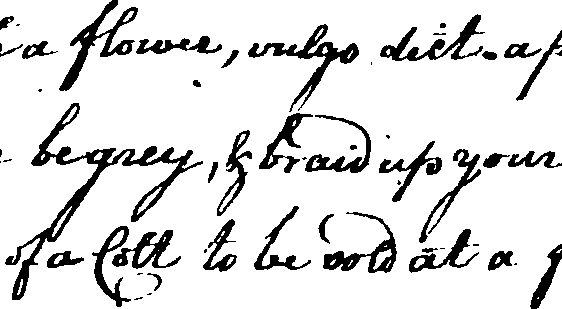 a flower, vulgo dict. a
be grey, & braid up your
of a Colt to be sold at a